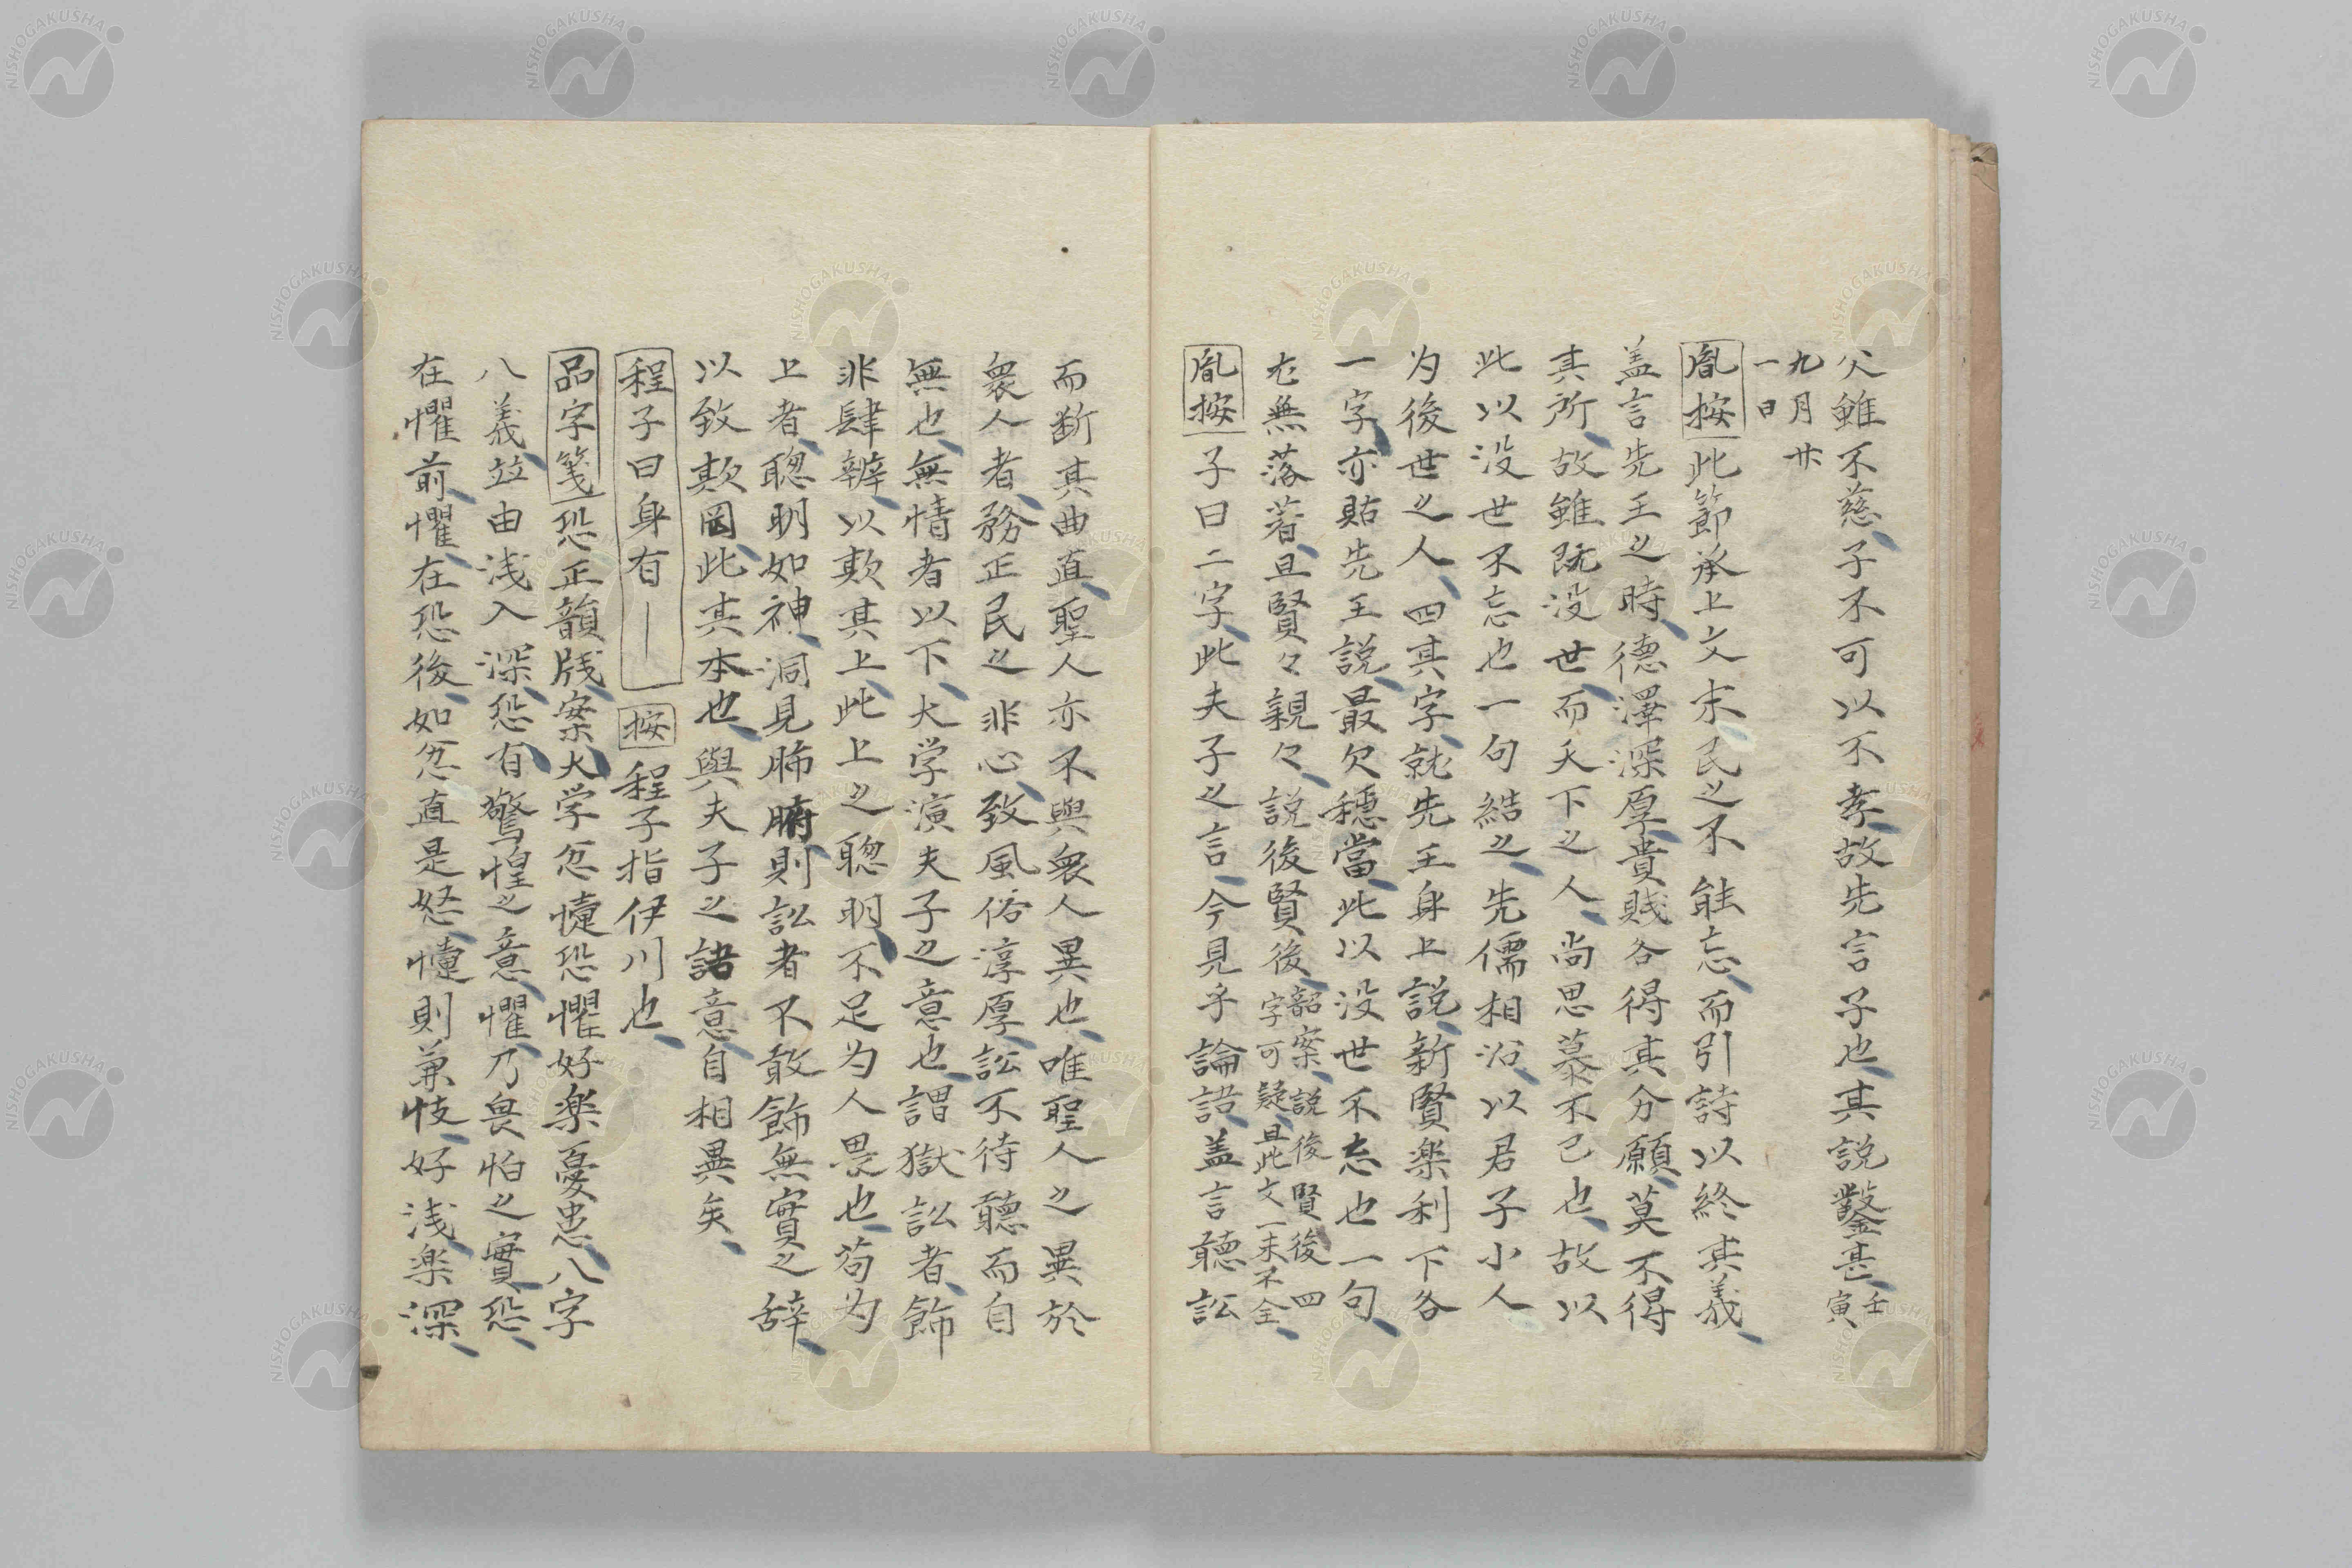 父雖不慈、子不可以不孝、故先言子也、其説鑿甚、壬寅
九月廿一日
胤按此節承上文末民之不能忘、而引詩以終其義、
盖言先王之時、德澤深厚、貴賤各得其分願、莫不得
其所、故雖既没世、而天下之人、尚思慕不已也、故以
此以没世不忘也一句結之、先儒相沿、以君子小人
为後世之人、四其字、就先王身上説、新賢楽利下各
一字、亦貼先王説、最欠穏當、此以没世不忘也一句、
尤無落着、且賢々親々、説後賢後、韶案、説後賢後四字可疑、且此文一本不全、
胤按子曰二字、此夫子之言、今見乎論語、盖言聽訟
而断其曲直、聖人亦不與衆人異也、唯聖人之異於
衆人者、務正民之非心、致風俗淳厚、訟不待聽而自
無也、無情者以下、大学演夫子之意也、謂獄訟者、飾
非肆辨、以欺其上、此上之聰明、不足为人畏也、苟为
上者、聰明如神、洞見肺腑、則訟者不敢飾無實之辞、
以致欺罔、此其本也、與夫子之語意、自相異矣、
程子曰身有― 按 程子指伊川也、
品字箋恐正韻牋、案大学忿懥恐懼好楽憂患、八字
八義、竝由浅入深、恐有驚惶之意、懼乃畏怕之實、恐、
在懼前、懼、在恐後、如忿直是怒、懥則兼忮、好浅、楽深、